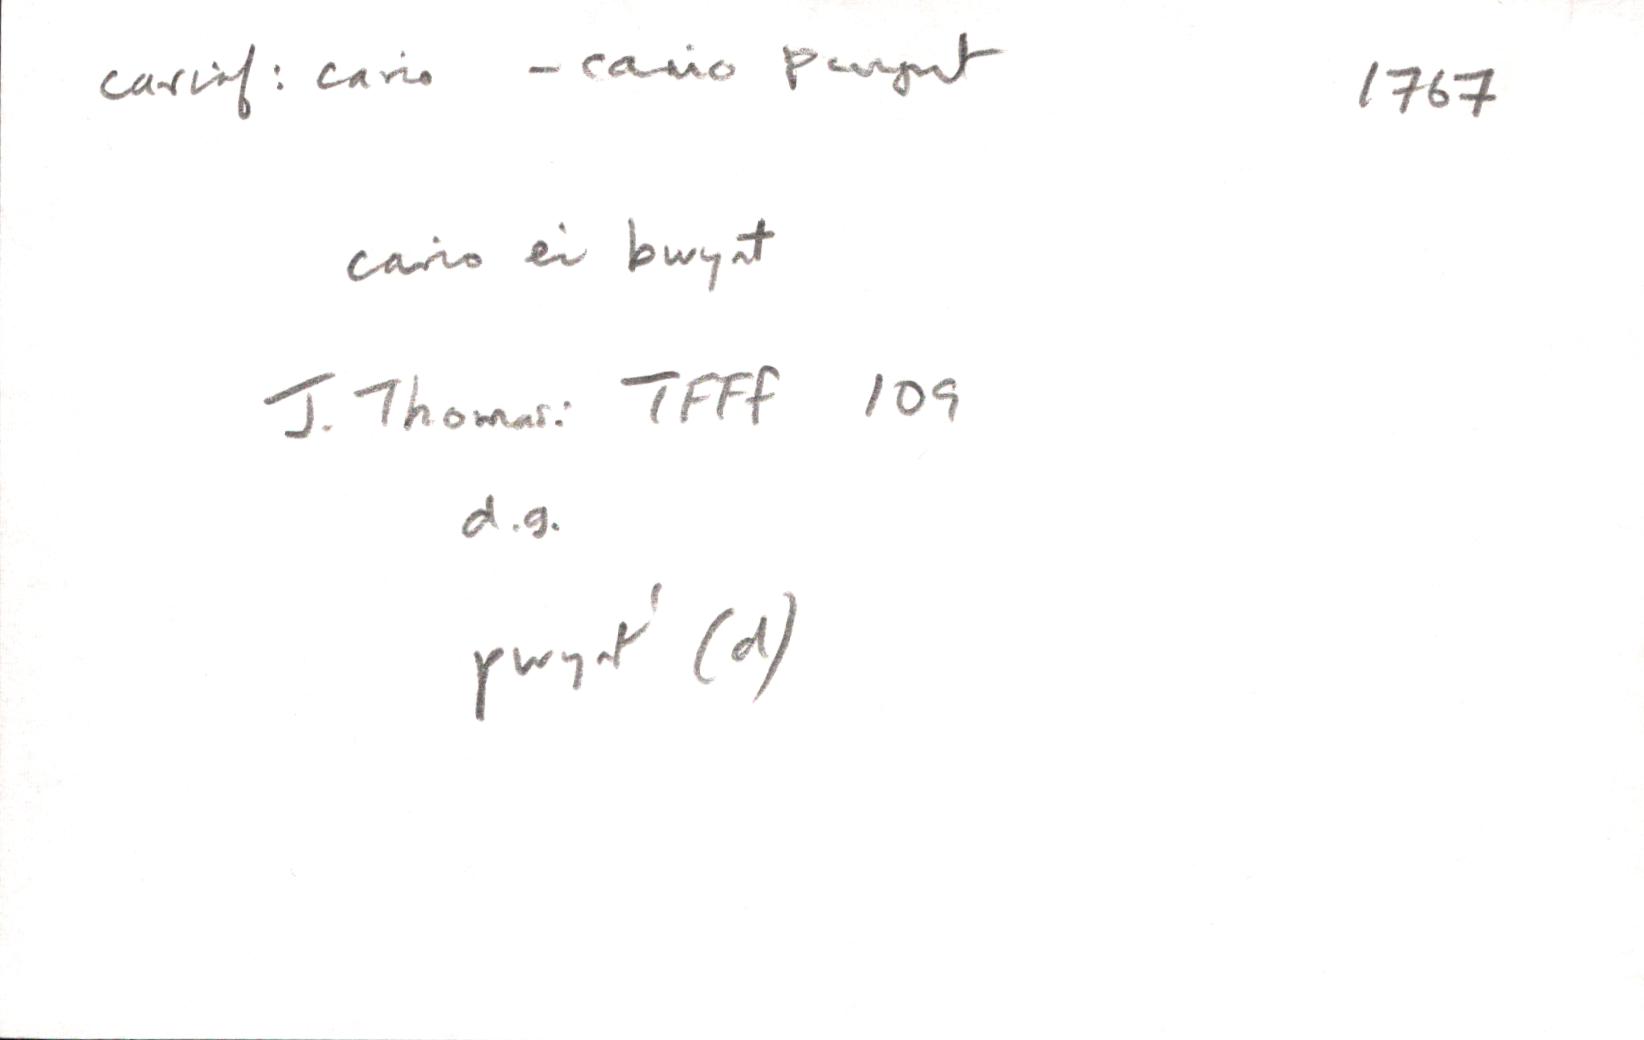 cariaf: cario - cario pwynt 1767
cario ei bwynt
J. Thomas: TFFf 109
d.g.
pwynt¹ (d)